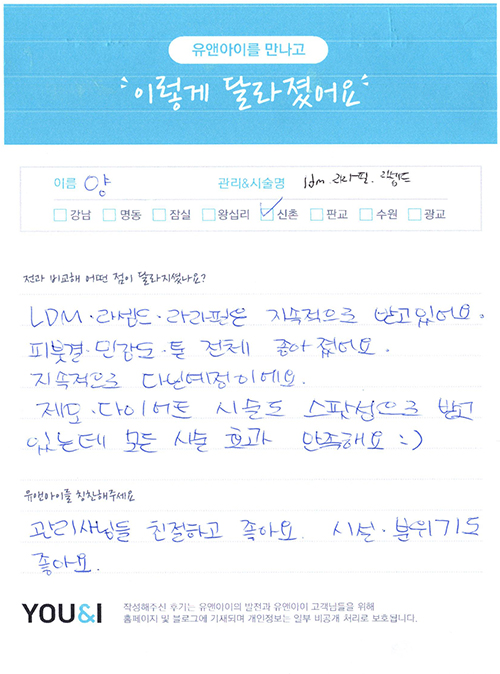 유앤아이를 만나고
이렇게 달라졌어요
이름 양 관리&시술명 ldm 라라필. 리쥬란드
강남 명동 잠실 왕십리 신촌 판교 수원 광교
전과 비교해 어떤 점이 달라지셨나요?
LDM·라셀드·라라필은 지속적으로 받고있어요.
피붓결·민감도·톤 전체 좋아졌어요.
지속적으로 다닌예정이에요.
제모·다이어트 시술도 스팟성으로 받고
있는데 모든 시술 효과 만족해요 :)
유앤아이를 칭찬해주세요
관리사님들 친절하고 좋아요. 시설·분위기도
좋아요.
YOU&I 작성해주신 후기는 유앤아이의 발전과 유앤아이 고객님들을 위해
홈페이지 및 블로그에 기재되며 개인정보는 일부 비공개 처리로 보호됩니다.